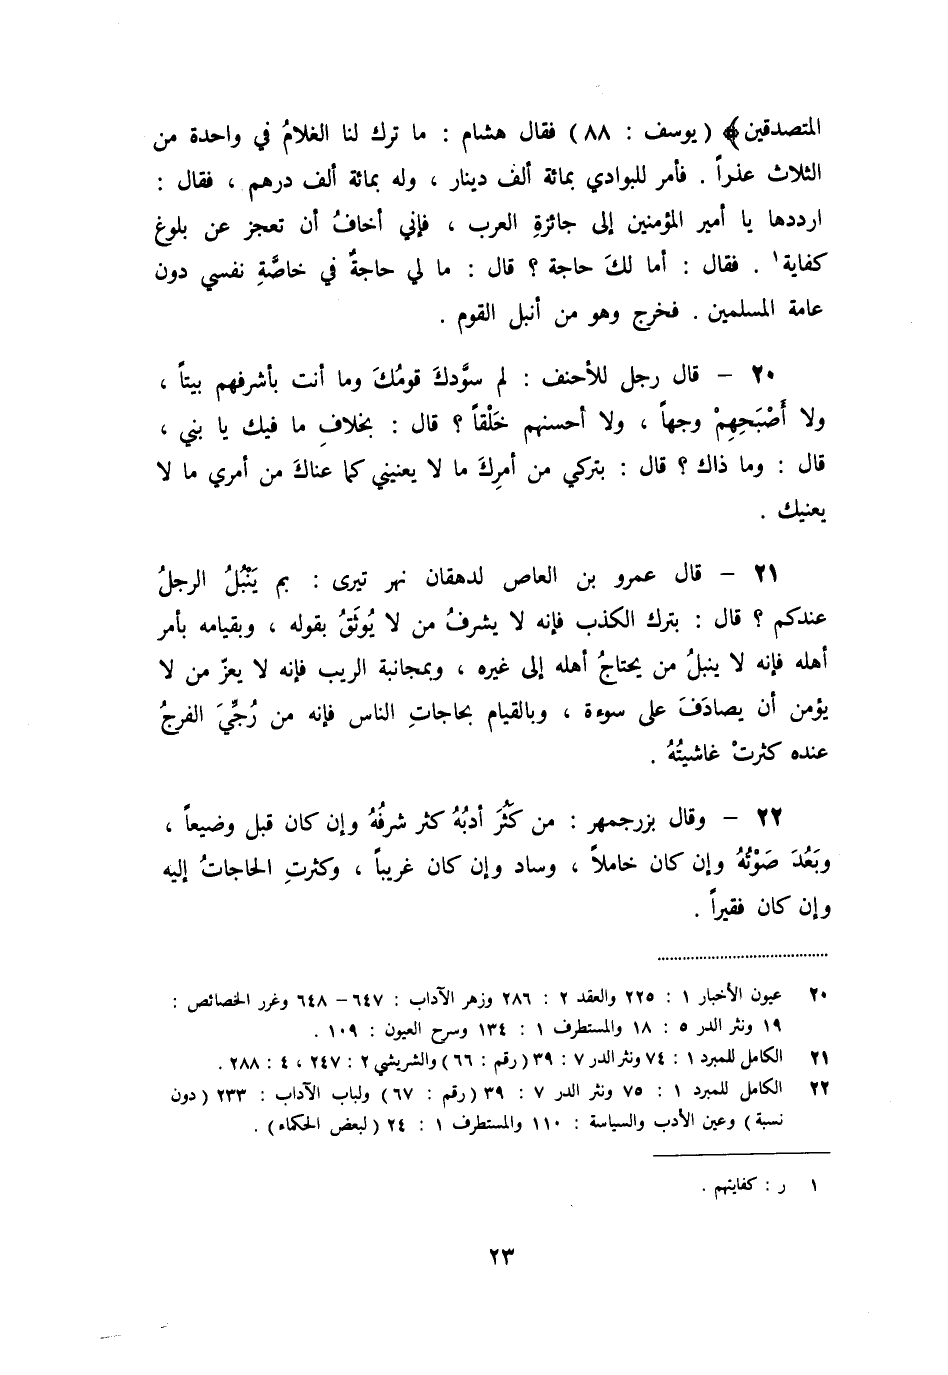 المتصدقين﴾ ( يوسف : ٨٨ ) فقال هشام : ما ترك لنا الغلامُ في واحدة من
الثلاث عذراً . فأمر للبوادي بمائة ألف دينار ، وله بمائة ألف درهم ، فقال :
ارددها يا أمير المؤمنين إلى جائزةِ العرب ، فإني أخافُ أن تعجز عن بلوغ
كفاية١ . فقال : أما لكَ حاجة ؟ قال : ما لي حاجةٌ في خاصَّةِ نفسي دون
عامة المسلمين . فخرج وهو من أنبل القوم .
٢٠ – قال رجل للأحنف : لم سوَّدكَ قومُكَ وما أنت بأشرفهم بيتاً ،
ولا أَصْبَحِهِمْ وجهاً ، ولا أحسنهم خَلْقاً ؟ قال : بخلافِ ما فيك يا بني ،
قال : وما ذاك ؟ قال : بتركي من أمرِكَ ما لا يعنيني كما عناكَ من أمري ما لا
يعنيك .
٢١ – قال عمرو بن العاص لدهقان نهر تيرى : بم يَنْبُلُ الرجلُ
عندكم ؟ قال : بترك الكذب فإنه لا يشرفُ من لا يُوثَقُ بقوله ، وبقيامه بأمر
أهله فإنه لا ينبلُ من يحتاجُ أهله إلى غيره ، وبمجانبة الريب فإنه لا يعزّ من لا
يؤمن أن يصادَفَ على سوءة ، وبالقيام بحاجاتِ الناس فإنه من رُجِّيَ الفرجُ
عنده كثرتْ غاشيتُهُ .
٢٢ – وقال بزرجمهر : من كَثُرَ أدبُهُ كثر شرفُهُ وإن كان قبل وضيعاً ،
وبَعُدَ صَوْتُهُ وإن كان خاملاً ، وساد وإن كان غريباً ، وكثرتِ الحاجاتُ إليه
وإن كان فقيراً .
٢٠ عيون الأخبار ١ : ٢٢٥ والعقد ٢ : ٢٨٦ وزهر الآداب : ٦٤٧ – ٦٤٨ وغرر الخصائص :
١٩ ونثر الدر ٥ : ١٨ والمستطرف ١ : ١٣٤ وسرح العيون : ١٠٩ .
٢١ الكامل للمبرد ١ : ٧٤ ونثر الدر ٧ : ٣٩ ( رقم : ٦٦ ) والشريشي ٢ : ٢٤٧ ، ٤ : ٢٨٨ .
٢٢ الكامل للمبرد ١ : ٧٥ ونثر الدر ٧ : ٣٩ ( رقم : ٦٧ ) ولباب الآداب : ٢٣٣ ( دون
نسبة ) وعين الأدب والسياسة : ١١٠ والمستطرف ١ : ٢٤ ( لبعض الحكماء ) .
١ ر : كفايتهم .
٢٣